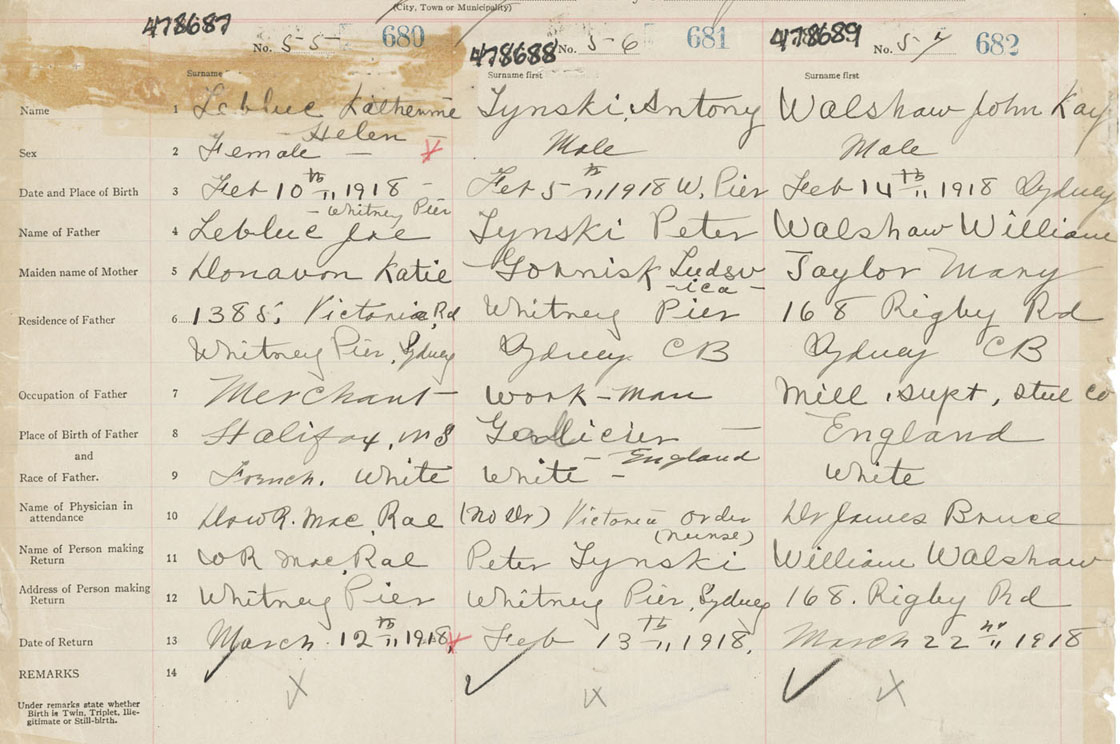 (City, Town or Municipality)
478687 No. 55 680 478688 No. 56 681 478689 No. 57 682
Surname Surname first Surname first
Name 1 Lebluc Katherine Tynski, Antony Walshaw John Kay
Helen
Sex 2 Female — X Male Male
Date and Place of Birth 3 Feb 10th " 1918 – Feb 5th " 1918 W. Pier Feb 14th " 1918 Sydney
– Whitney Pier
Name of Father 4 Lebluc Joe Tynski Peter Walshaw William
Maiden name of Mother 5 Donavon Katie Gornisk Ludsv Taylor Mary
– ica –
Residence of Father 6 1385; Victoria Rd Whitney Pier 168 Rigby Rd
Whitney Pier, Sydney Sydney CB Sydney CB
Occupation of Father 7 Merchant – Work-man Mill, Supt, Steel Co
Place of Birth of Father 8 Halifax, NS — England
and – England
Race of Father. 9 French. White White – White
Name of Physician in
attendance 10 R. Mac Rae (No Dr) Victoria order Dr James Bruce
(nurse)
Name of Person making
Return 11 W R Mac Rae Peter Tynski William Walshaw
Address of Person making
Return 12 Whitney Pier Whitney Pier, Sydney 168. Rigby Rd
Date of Return 13 March. 12th " 1918, X Feb 13th " 1918, March 22nd " 1918
REMARKS 14
Under remarks state whether
Birth is Twin, Triplet, Ille-
gitimate or Still-birth.